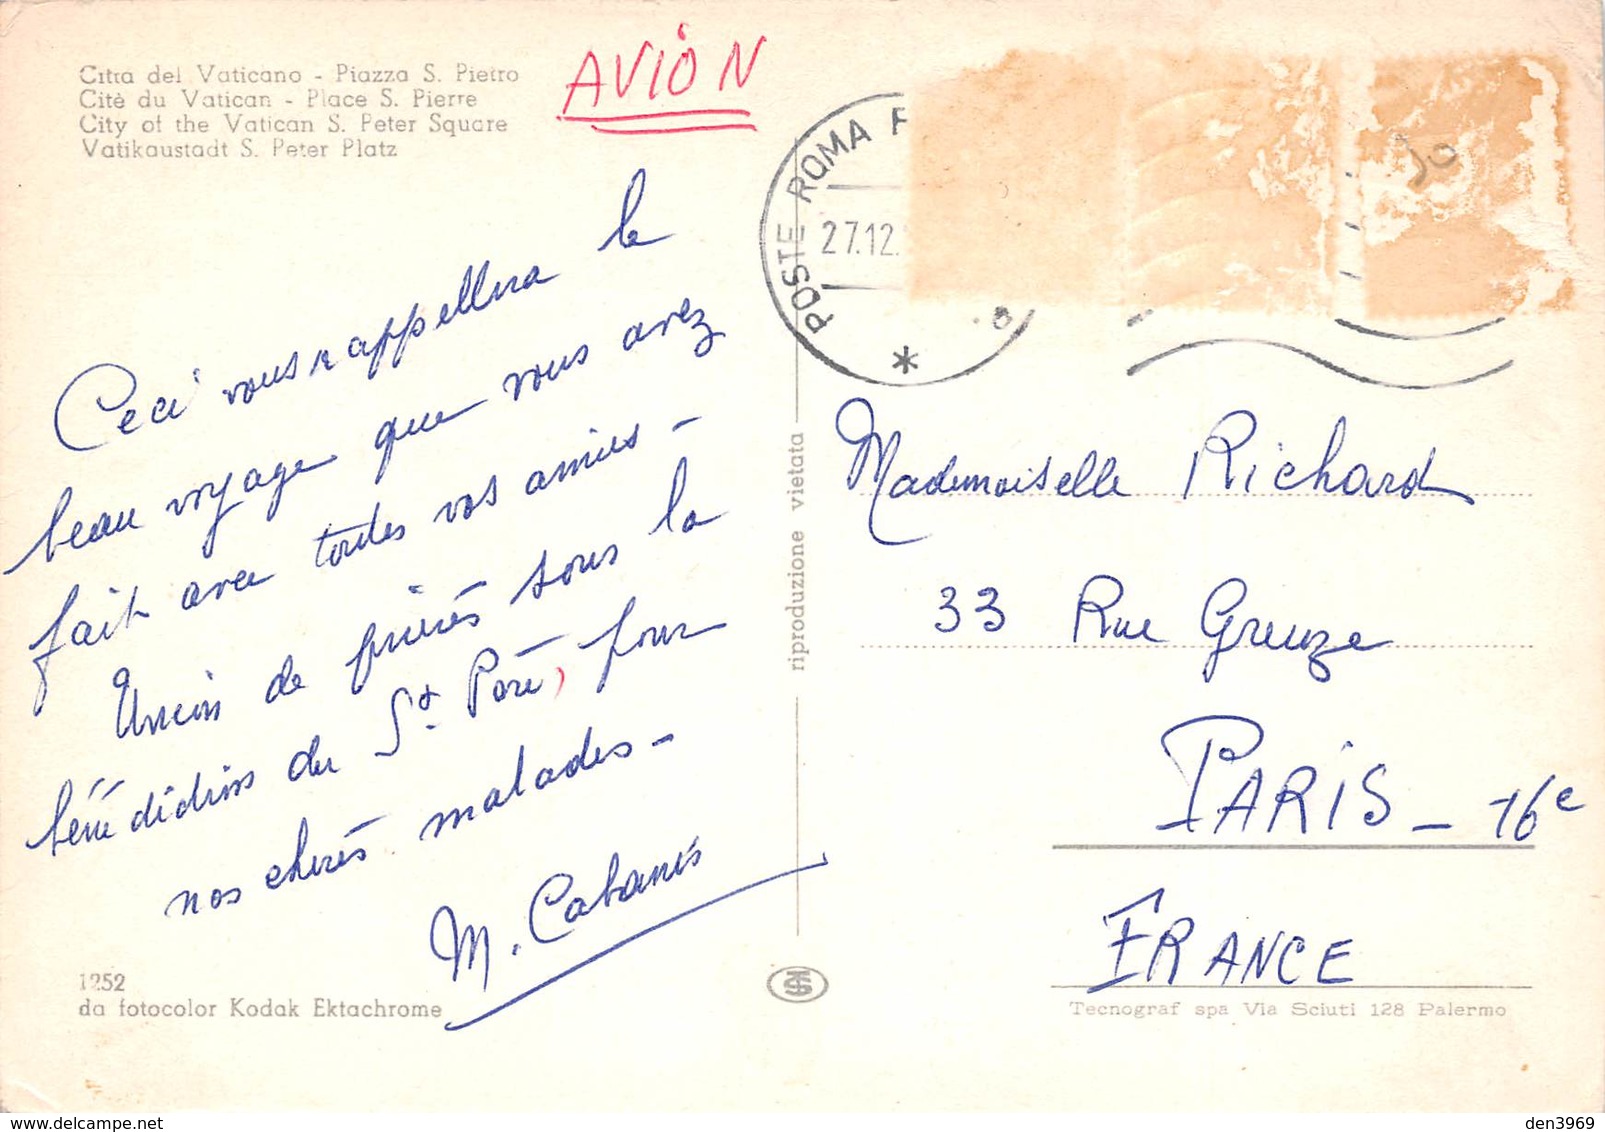 Citta del Vaticano - Piazza S. Pietro
Citè du Vatican - Place S. Pierre
City of the Vatican S. Peter Square
Vatikaustadt S. Peter Platz
AVION
POSTE ROMA F
27.12.
30
Ceci vous rappellera le
beau voyage que vous avez
fait avec toutes vos amies -
Union de prières sous la
bénédiction du St. Père, pour
nos chères malades -
M. Cabanis
riproduzione vietata
Mademoiselle Richard
33 Rue Greuze
PARIS - 16e
FRANCE
1252
da fotocolor Kodak Ektachrome
Tecnograf spa Via Sciuti 128 Palermo
den3969